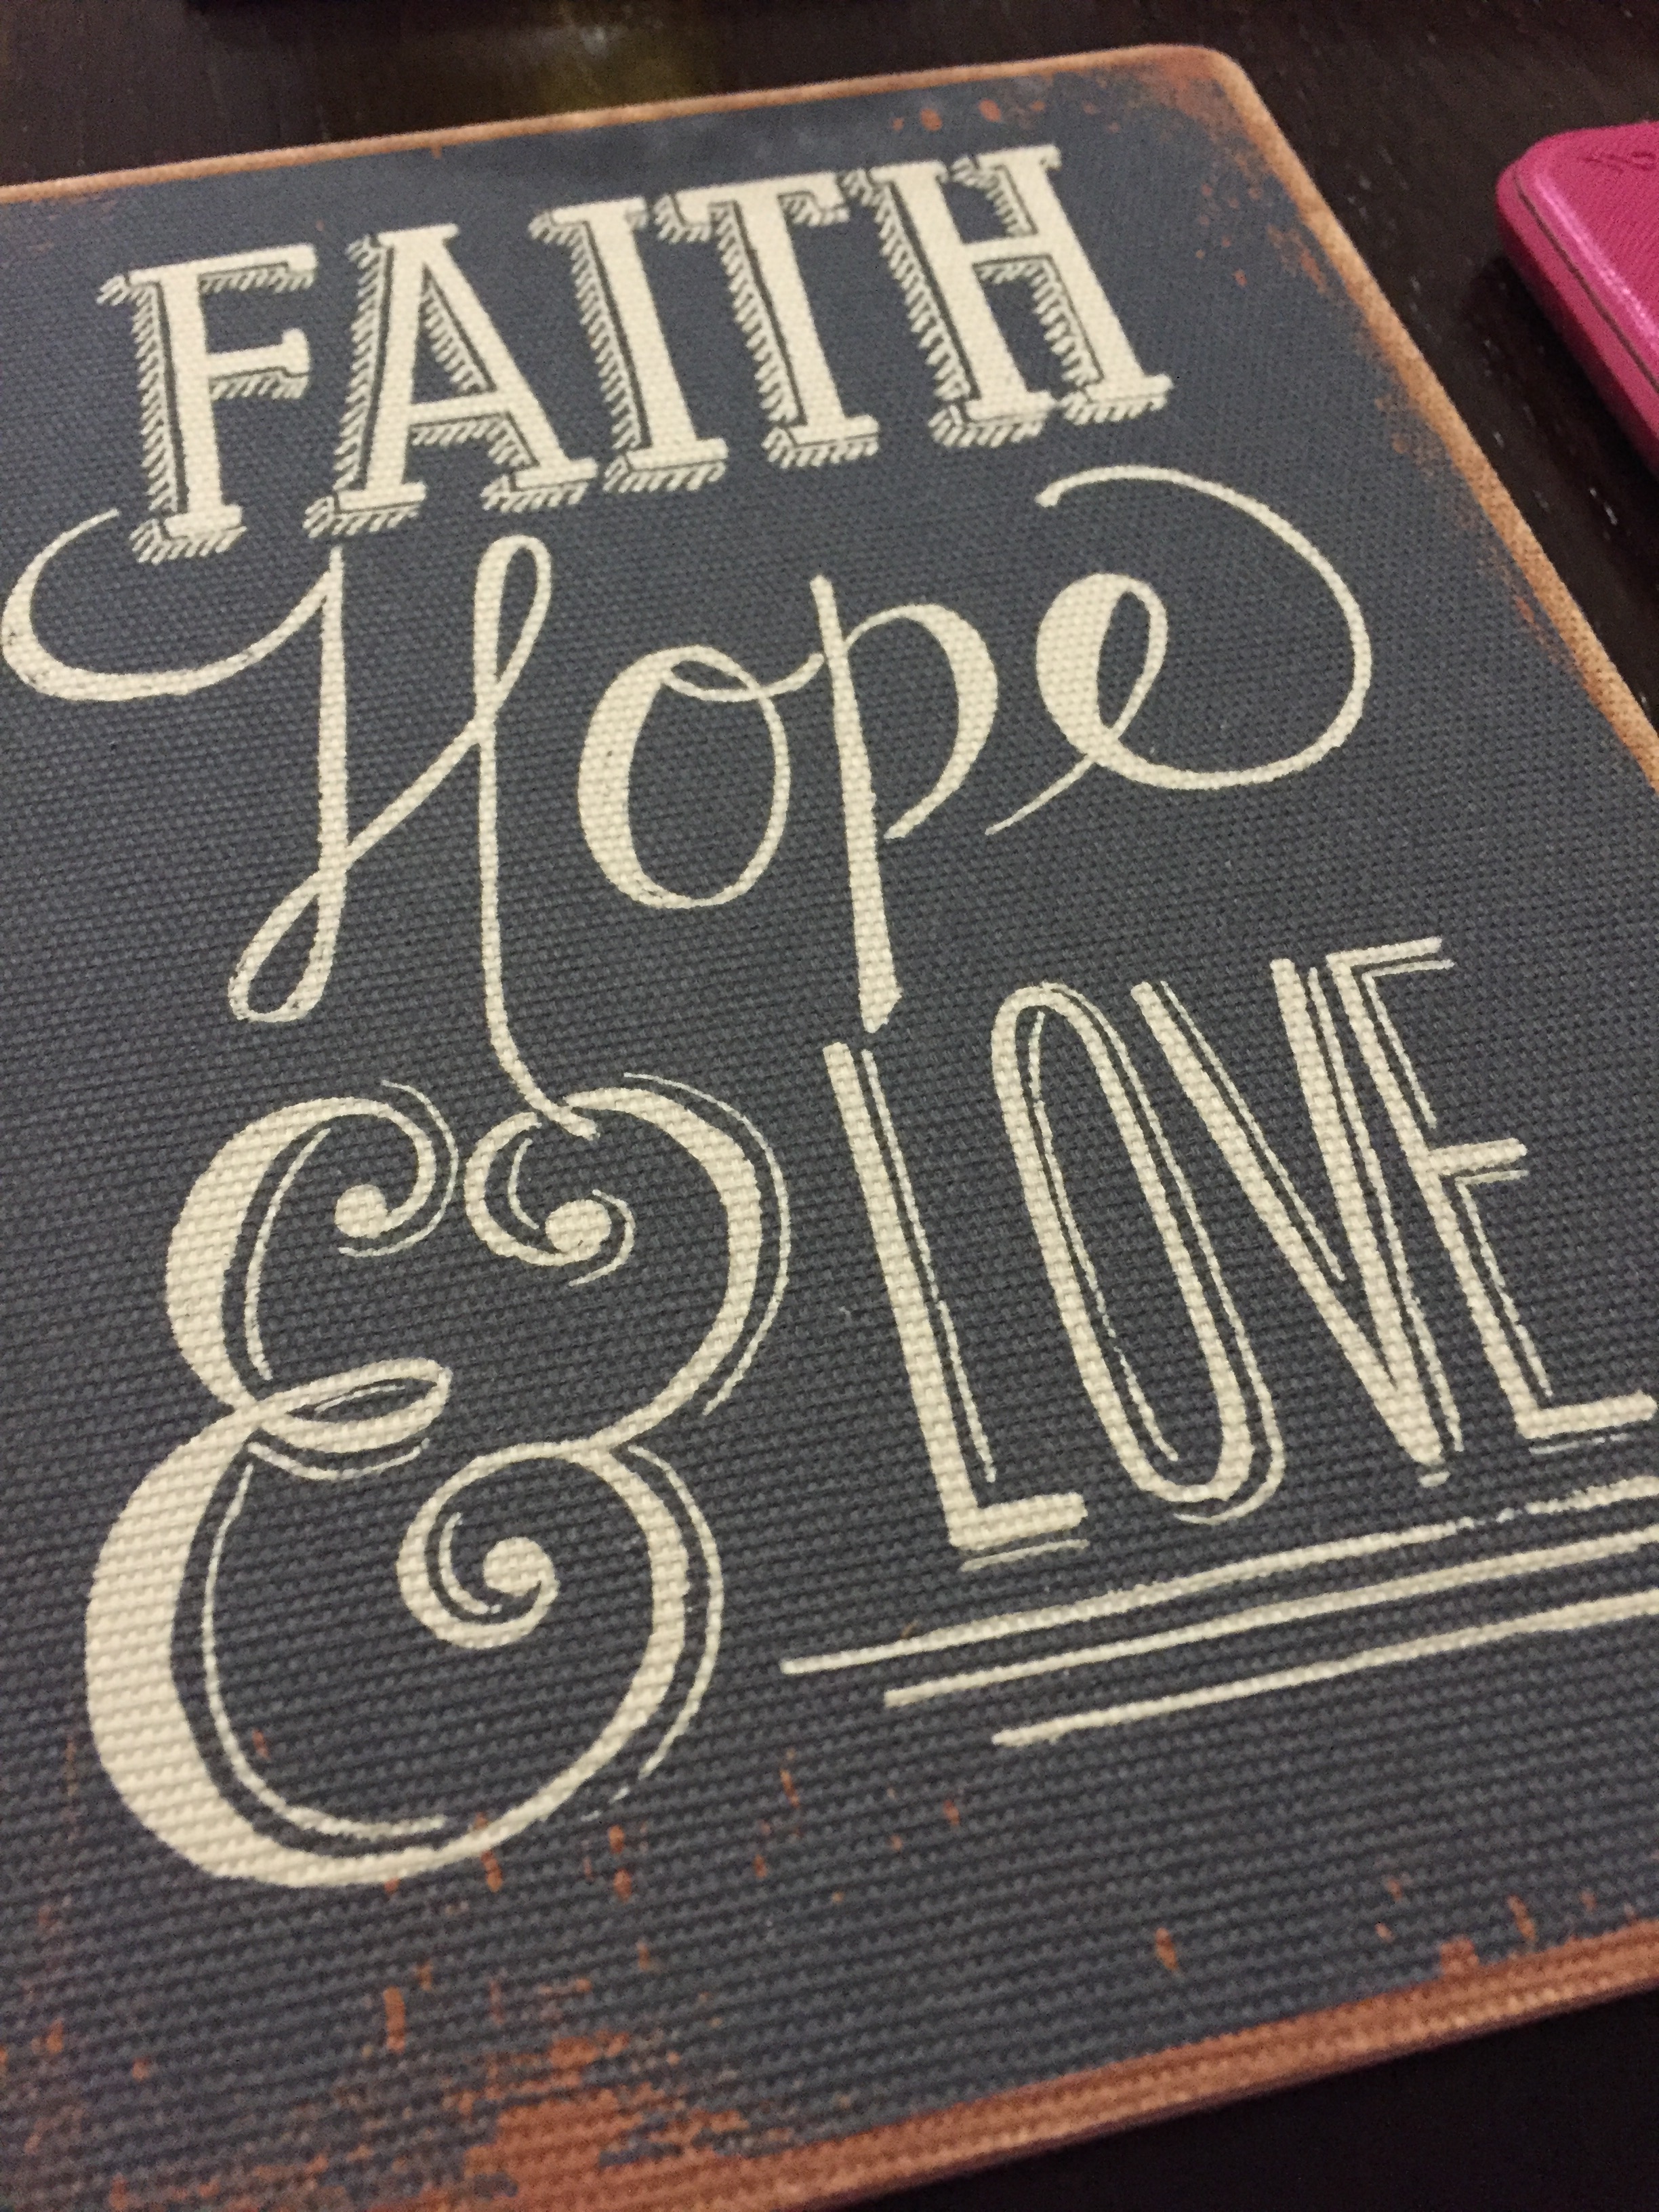 FAITH
Hope
& LOVE